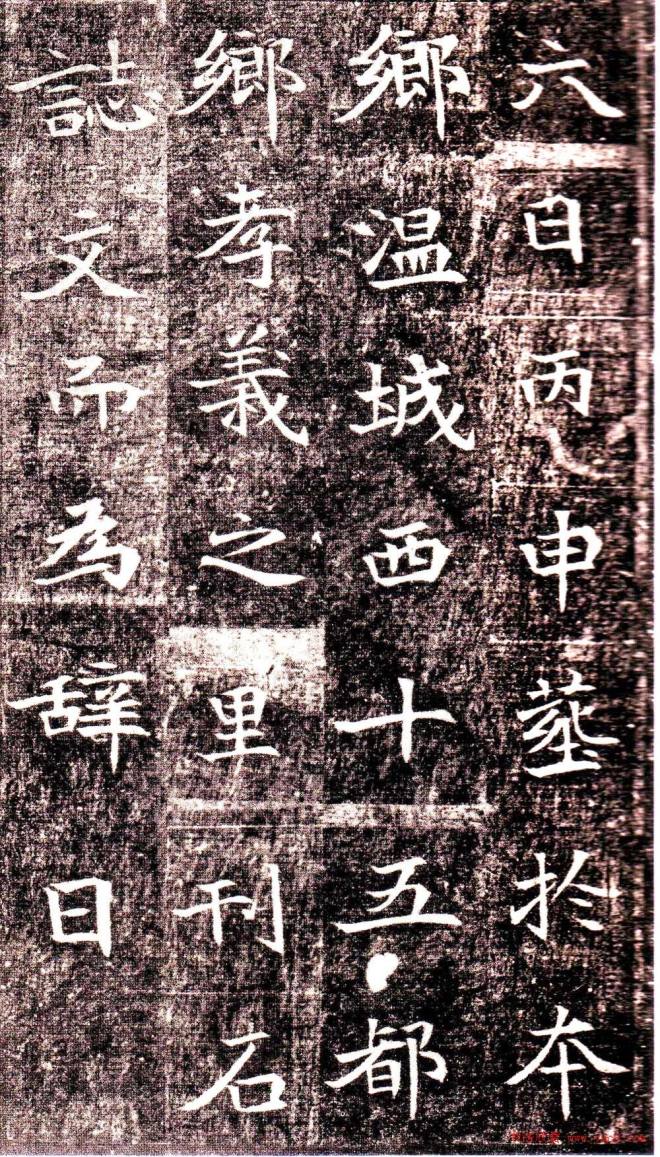 六日丙申葬於本
鄉温城西十五都
鄉孝義之里刊石
誌文而為辞曰